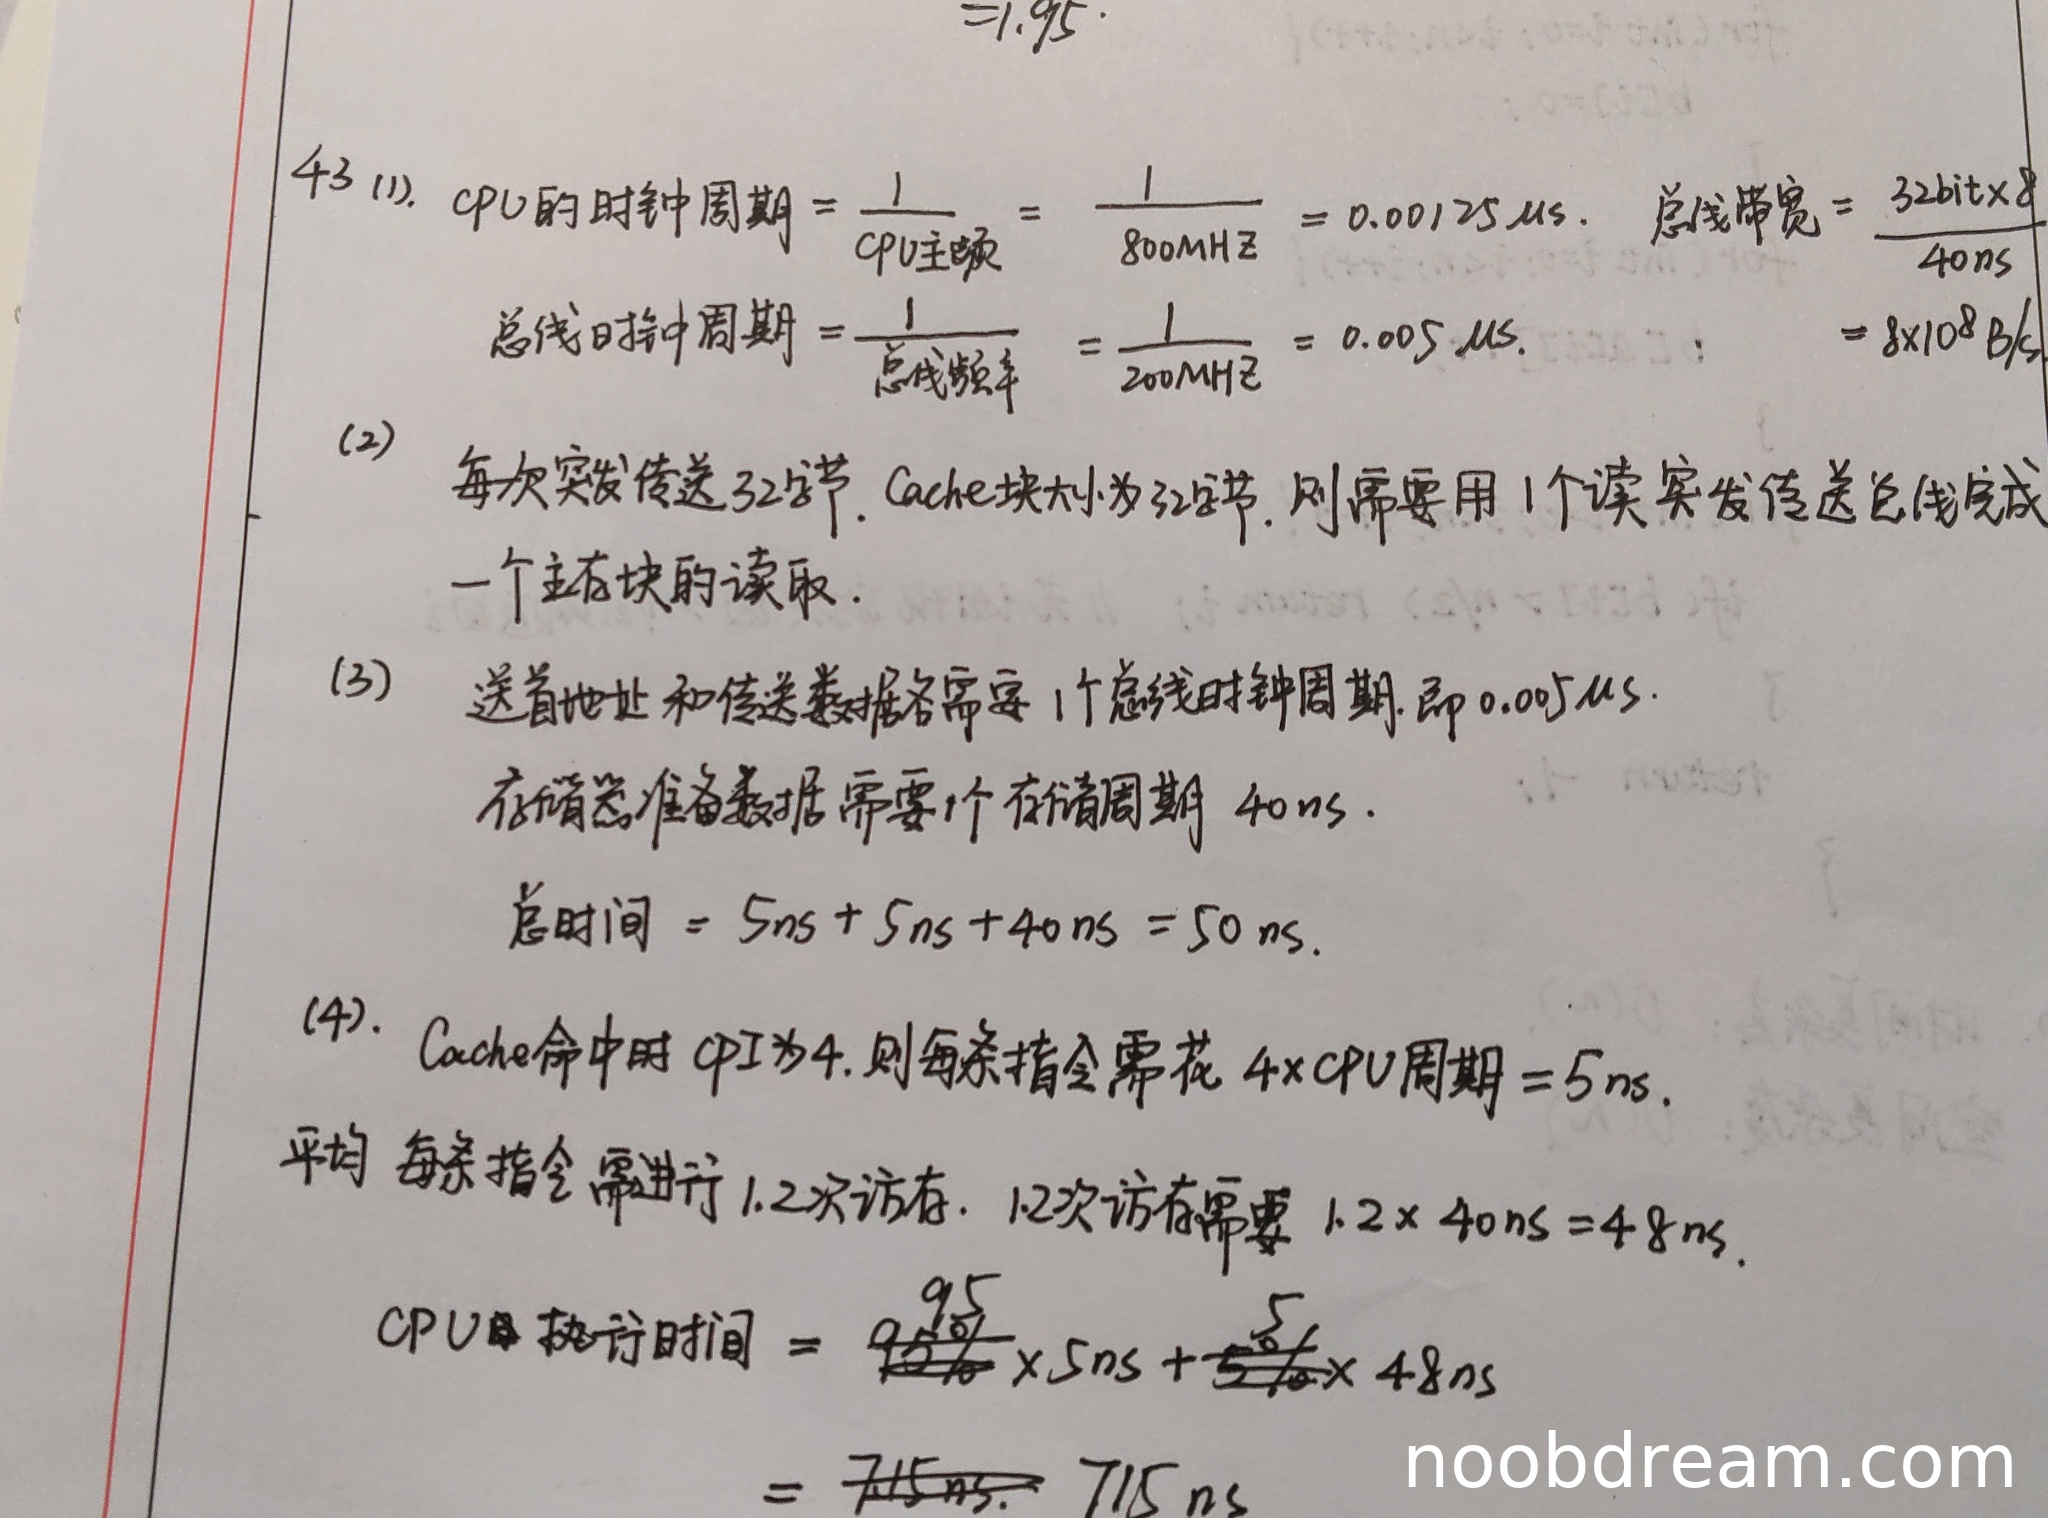 =1.95.
43 (1). CPU的时钟周期 = 1/CPU主频 = 1/800MHZ = 0.00125μs. 总线带宽 = 32bit×8/40ns
总线时钟周期 = 1/总线频率 = 1/200MHZ = 0.005μs. = 8×10⁸B/s
(2) 每次突发传送32字节. Cache块大小为32字节. 则需要用1个读突发传送总线完成
一个主存块的读取.
(3) 送首地址和传送数据各需要1个总线时钟周期.即0.005μs.
存储器准备数据需要1个存储周期 40ns.
总时间 = 5ns + 5ns + 40ns = 50ns.
(4). Cache命中时CPI为4.则每条指令需花 4×CPU周期 = 5ns.
平均 每条指令需进行1.2次访存. 1.2次访存需要 1.2×40ns = 48ns.
CPU执行时间 = 95×5ns + 5×48ns
= 715ns
noobdream.com